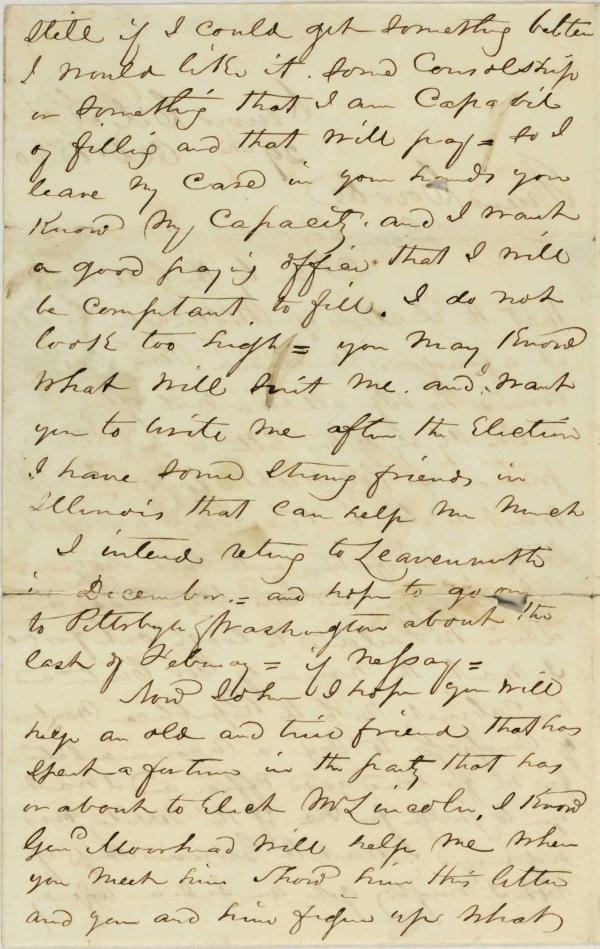 still if I could get something better
I would like it. some Consolship
or something that I am Capabil
of fillig and that will pay = so I
leave my Case in your hands you
Know my Capacity. and I want
a good paying office that I will
be computant to fill. I do not
look too high = you may Know
what will suit me. and I want
you to write me after the Election
I have some strong friends in
Illinois that can help me much
I intend retug to Leavenworth
in December. = and hope to go on
to Pittsbugh & Washington about the
last of Febuay = if nessay =
Now John I hope you will
help an old and true friend that has
spent a fortune in the party that has
or about to Elect Mr Lincoln. I Know
Genl Moorhead will help me when
you meet him show him this letter
and you and him figue up what